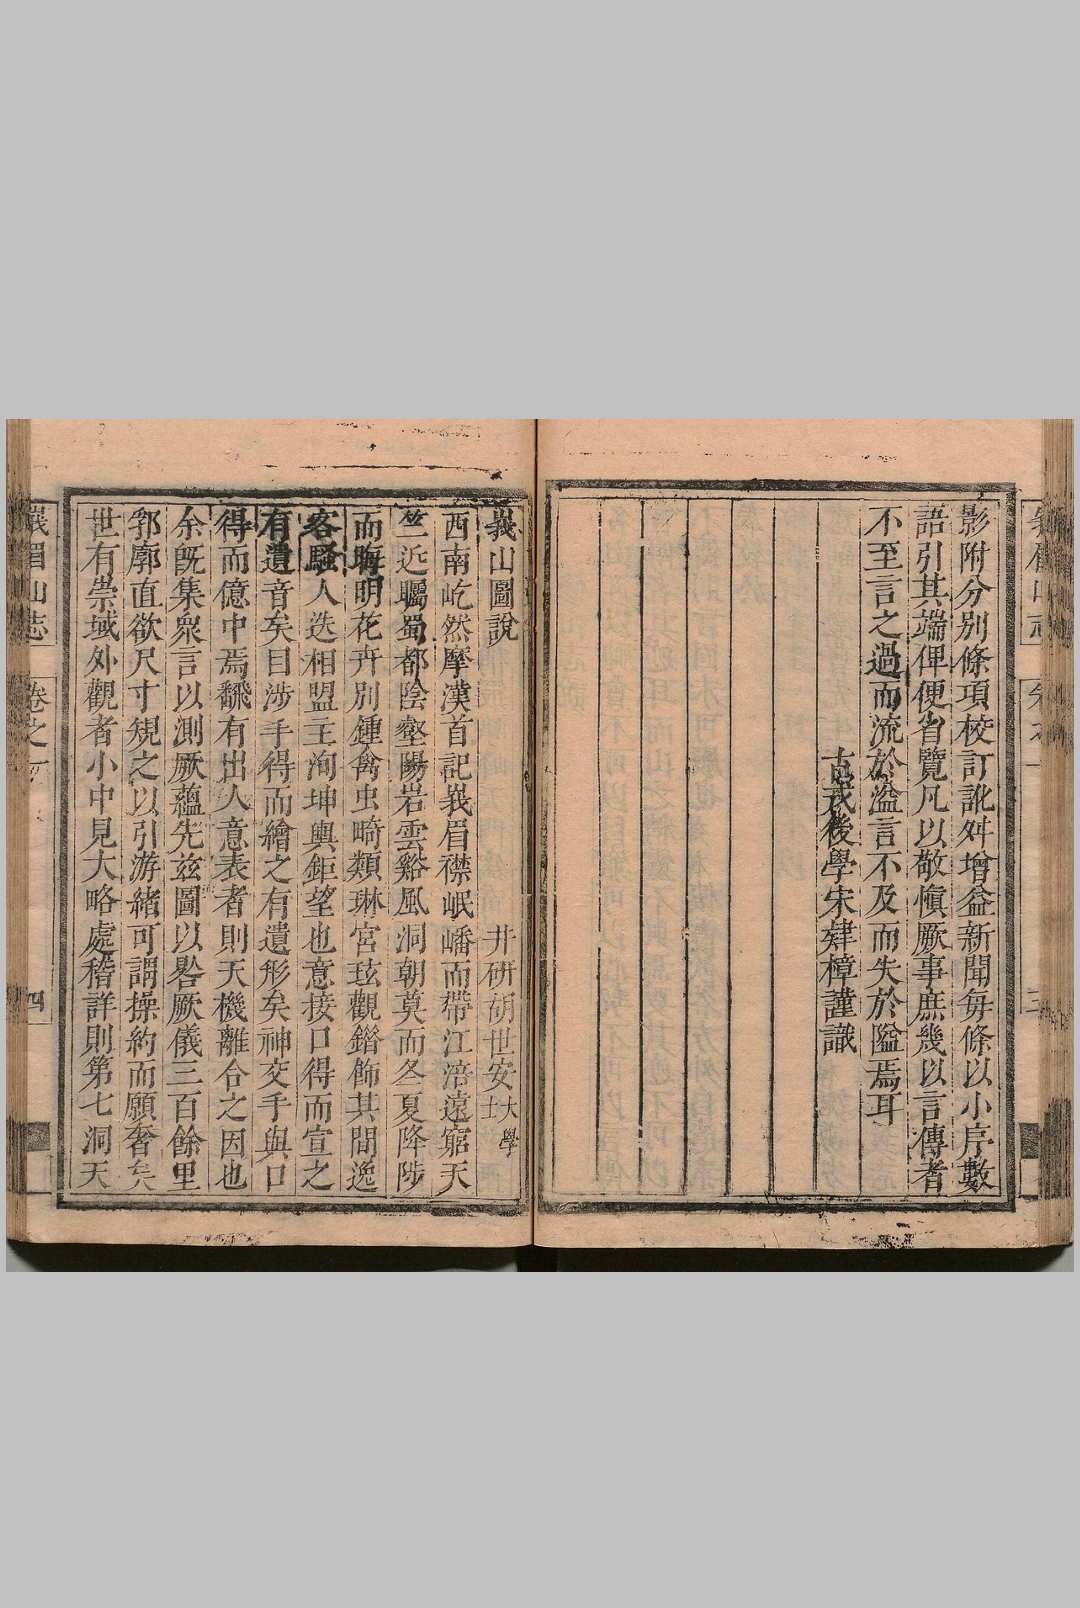 影附分別條項校訂訛舛增益新聞每條以小序數
語引其端俾便省覽凡以敬愼厥事庶幾以言傳者
不至言之過而流於溢言不及而失於隘焉耳
古戎後學宋肄樟謹識
峩山圖說
井研胡世安大學士
西南屹然摩漢首記峩眉襟岷嶓而帶江涪遠窮天
竺近矚蜀都陰壑陽岩雲谿風洞朝莫而冬夏降陟
而晦明花卉別鍾禽虫畸類琳宮玹觀錯飾其間逸
客騷人迭相盟主洵坤輿鉅望也意接口得而宣之
有遺音矣目涉手得而繪之有遺形矣神交手與口
得而億中焉飜有出人意表者則天機離合之因也
余旣集衆言以測厥蘊先兹圖以畧厥儀三百餘里
郛廓直欲尺寸規之以引游緒可謂操約而願奢矣
世有崇域外觀者小中見大略處稽詳則第七洞天
峩眉山志
卷之一
四